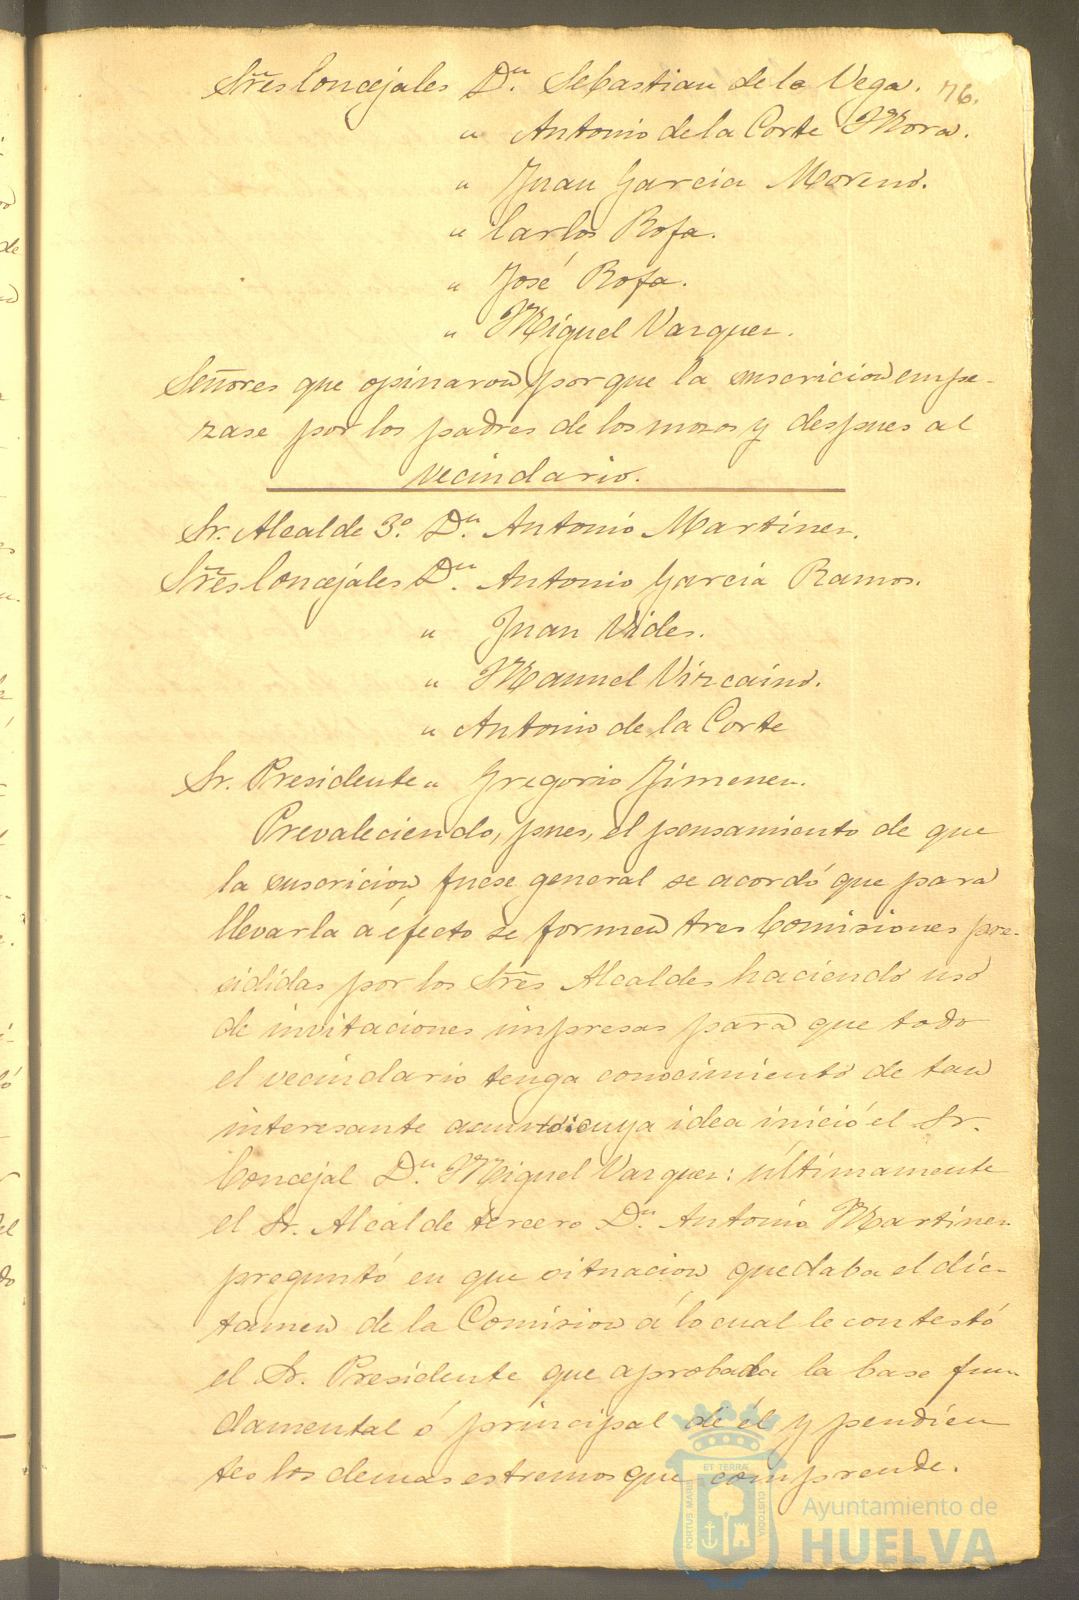 Sres Concejales Dn. Sebastian de la Vega. 76.
" Antonio de la Corte Mora.
" Juan Garcia Moreno.
" Carlos Rofa.
" José Rofa.
" Miguel Vazquez.
Señores que opinaron porque la suscricion empe-
zase por los padres de los mozos y despues al
vecindario.
Sr. Alcalde 3º. Dn. Antonio Martinez.
Sres Concejales Dn. Antonio Garcia Ramos.
" Juan Vides.
" Manuel Vizcaino.
" Antonio de la Corte
Sr. Presidente " Gregorio Jimenez.
Prevaleciendo, pues, el pensamiento de que
la suscricion fuese general se acordó que para
llevarla á efecto se formen tres Comisiones pre-
sididas por los Sres Alcaldes haciendo uso
de invitaciones impresas para que todo
el vecindario tenga conocimiento de tan
interesante cuya idea inició el Sr.
Concejal Dn. Miguel Vazquez: últimamente
el Sr. Alcalde tercero Dn. Antonio Martinez
preguntó en que situacion quedaba el dic-
tamen de la Comision á lo cual le contestó
el Sr. Presidente que aprobada la base fun-
damental ó principal de él y pendien
tes los demas estremos que comprende.
ET TERRÆ
PORTUS MARIS
CUSTODIA
Ayuntamiento de
HUELVA